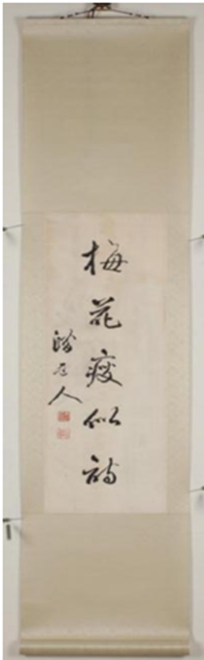 梅花瘦似詩
人